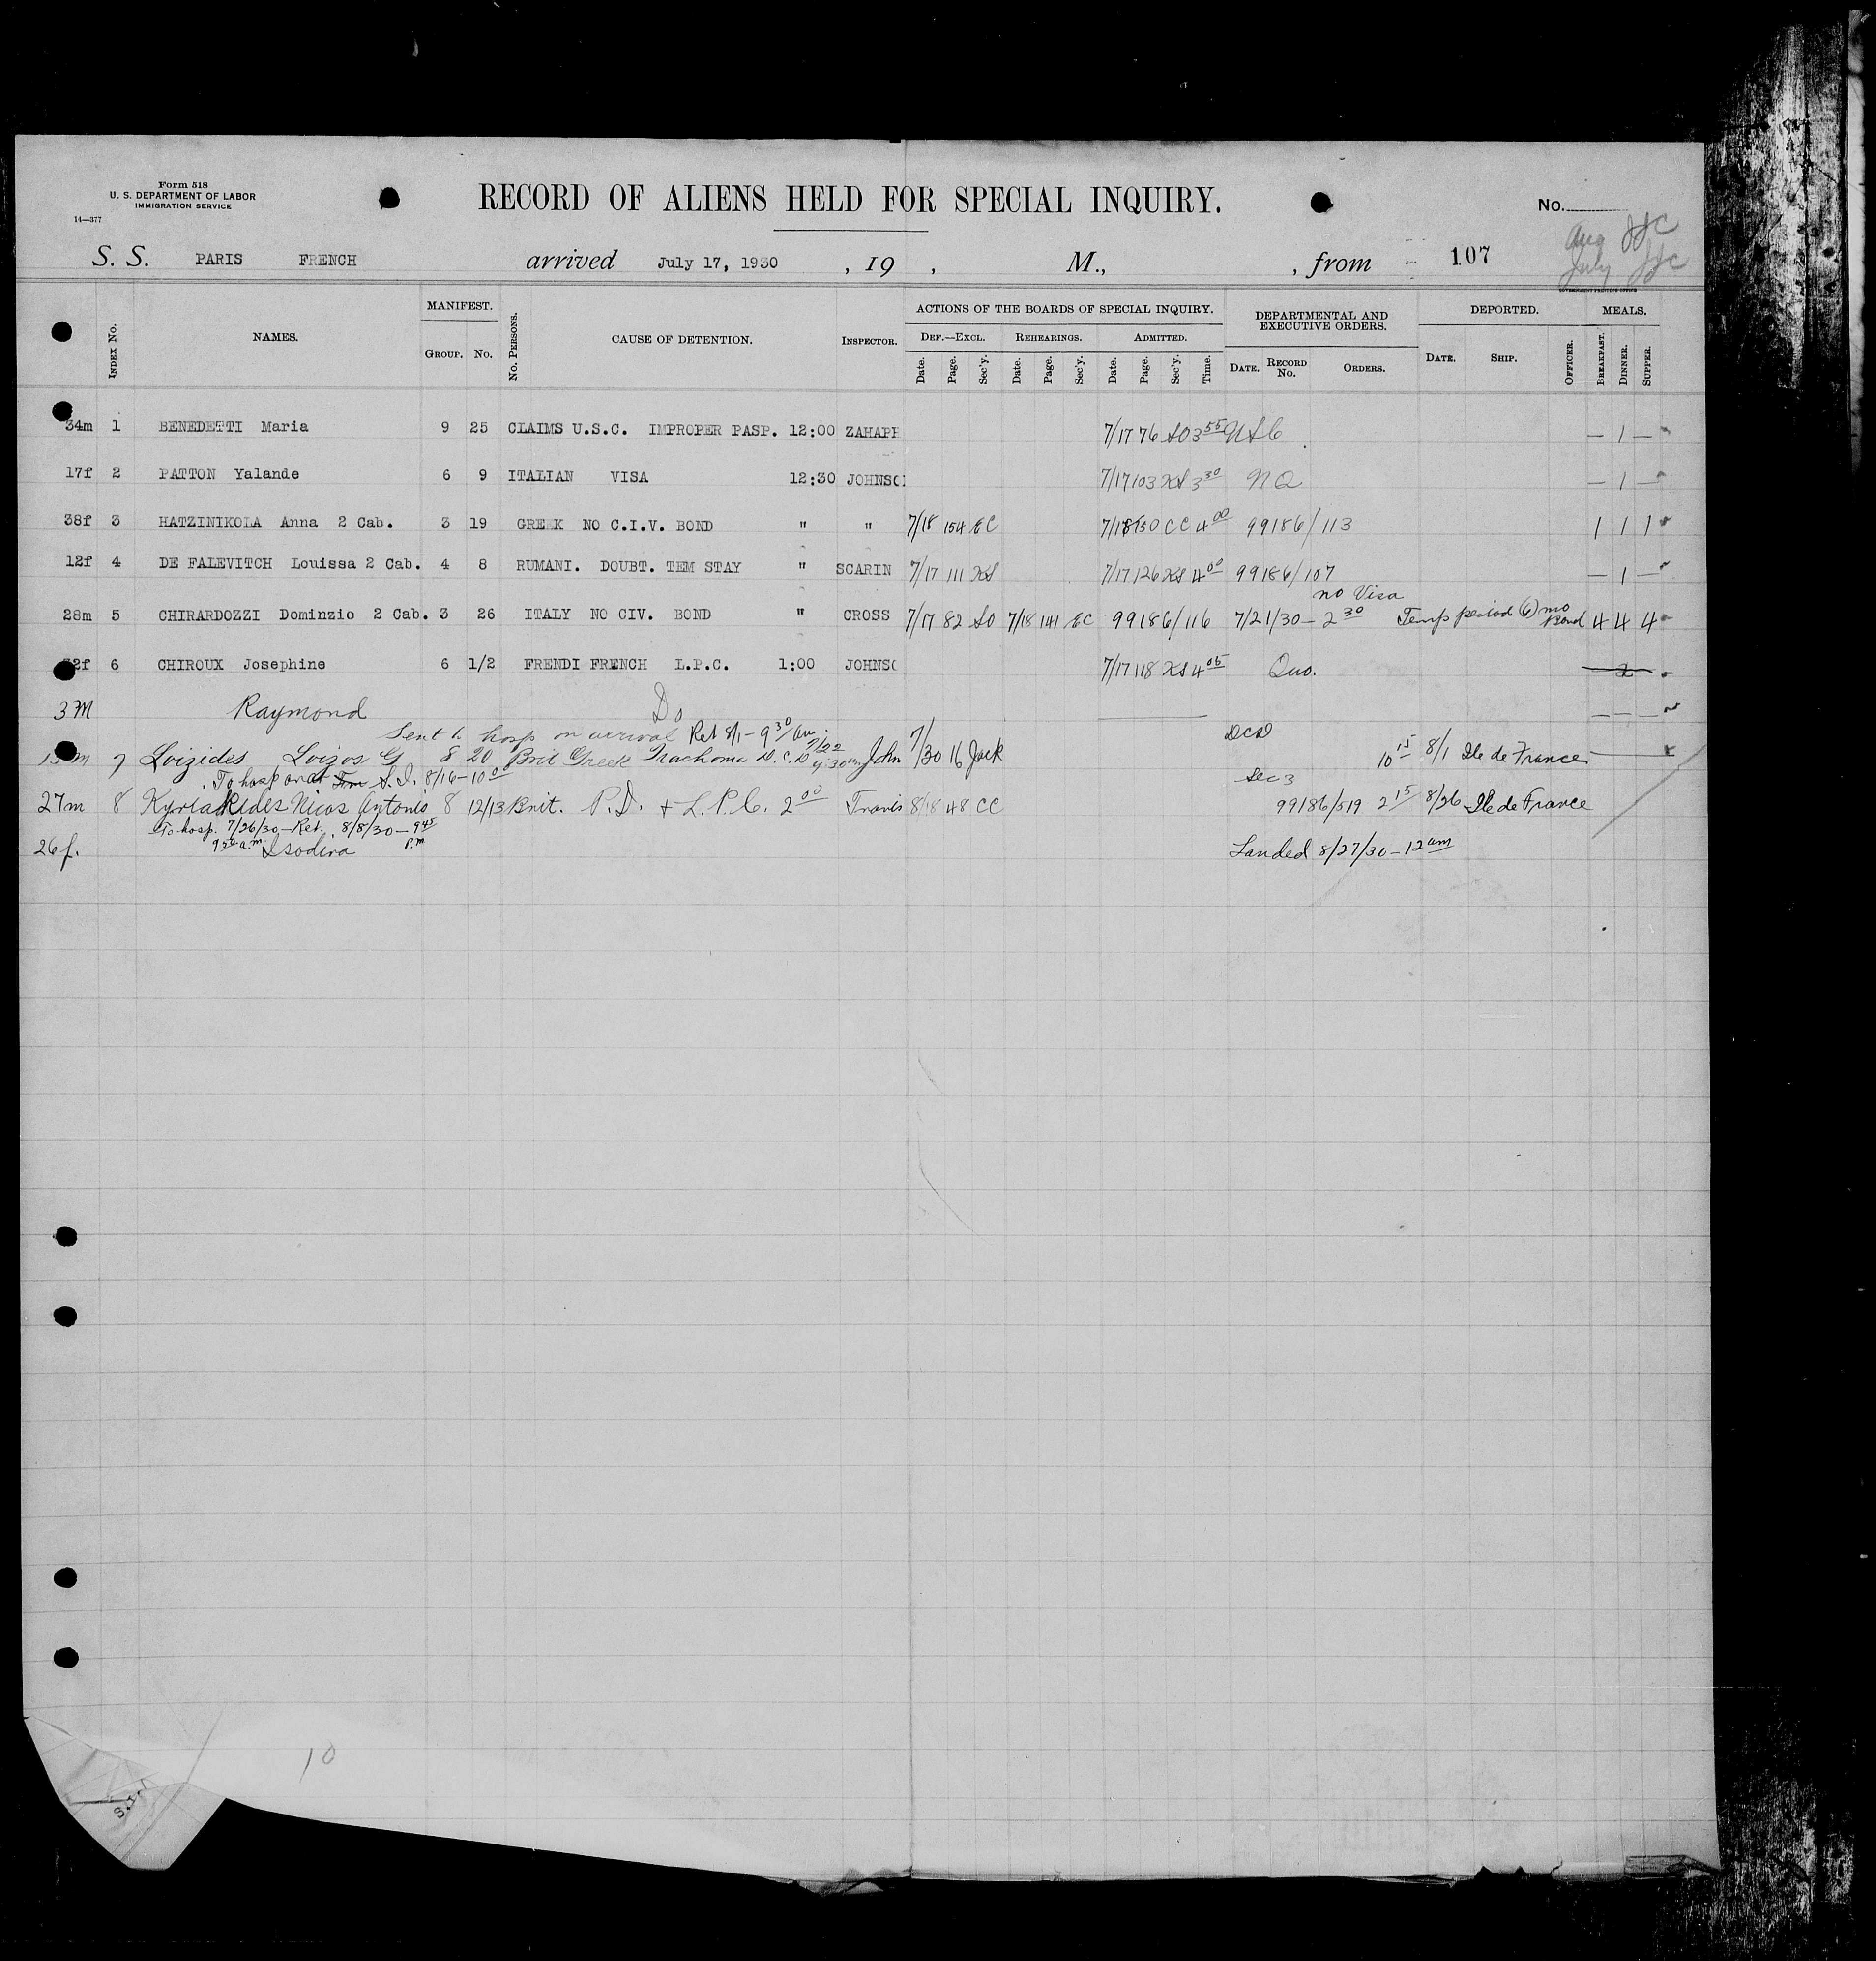 Form 518
U. S. DEPARTMENT OF LABOR
IMMIGRATION SERVICE
14—377
RECORD OF ALIENS HELD FOR SPECIAL INQUIRY.
No.
Aug
July
S. S. PARIS FRENCH arrived July 17, 1930 , 19 , M., , from 107
GOVERNMENT PRINTING OFFICE
INDEX NO. NAMES. MANIFEST. GROUP. NO. NO. PERSONS. CAUSE OF DETENTION. INSPECTOR. ACTIONS OF THE BOARDS OF SPECIAL INQUIRY. DEPARTMENTAL AND EXECUTIVE ORDERS. DEPORTED. MEALS.
DEF.—EXCL. REHEARINGS. ADMITTED.
Date. Page. Sec'y. Date. Page. Sec'y. Date. Page. Sec'y. Time. DATE. RECORD NO. ORDERS. DATE. SHIP. OFFICER. BREAKFAST. DINNER. SUPPER.
34m 1 BENEDETTI Maria 9 25 CLAIMS U.S.C. IMPROPER PASP. 12:00 ZAHAPP 7/17 76 SO 3 55 USC — 1 —
17f 2 PATTON Yalande 6 9 ITALIAN VISA 12:30 JOHNSO 7/17 103 3 30 NQ — 1 —
38f 3 HATZINIKOLA Anna 2 Cab. 3 19 GREEK NO C.I.V. BOND " " 7/18 154 EC 7/18 150 CC 4 00 99186/113 1 1 1
12f 4 DE FALEVITCH Louissa 2 Cab. 4 8 RUMANI. DOUBT. TEM STAY " SCARIN 7/17 111 7/17 126 4 00 99186/107 — 1 —
no Visa
28m 5 CHIRARDOZZI Dominzio 2 Cab. 3 26 ITALY NO CIV. BOND " CROSS 7/17 82 SO 7/18 141 EC 99186/116 7/21/30 — 2 30 Temp period (6) mo Bond 4 4 4
32f 6 CHIROUX Josephine 6 1/2 FRENDI FRENCH L.P.C. 1:00 JOHNSO 7/17 118 4 05 Quo.
3 M Raymond Do — — —
Sent to hosp on arrival Ret 8/1 - 9 30 am DCSD
m 7 Loizides Loizos G 8 20 Brit Greek Trachoma D.C.D 7/22 9:30 am John 7/30 16 Jack 10 15 8/1 Ile de France
To hosp S.I. 8/16 - 10 00 Sec 3
27m 8 Kyriakides Nicos Antonio 8 12/13 Brit. P.D. + L.P.C. 2 00 Travis 8/18 48 CC 99186/519 2 15 8/26 Ile de France
To hosp. 7/26/30 - Ret. 8/8/30 - 9 45 P.M
26f. Isodira Landed 8/27/30 - 12 am
10
S.I.